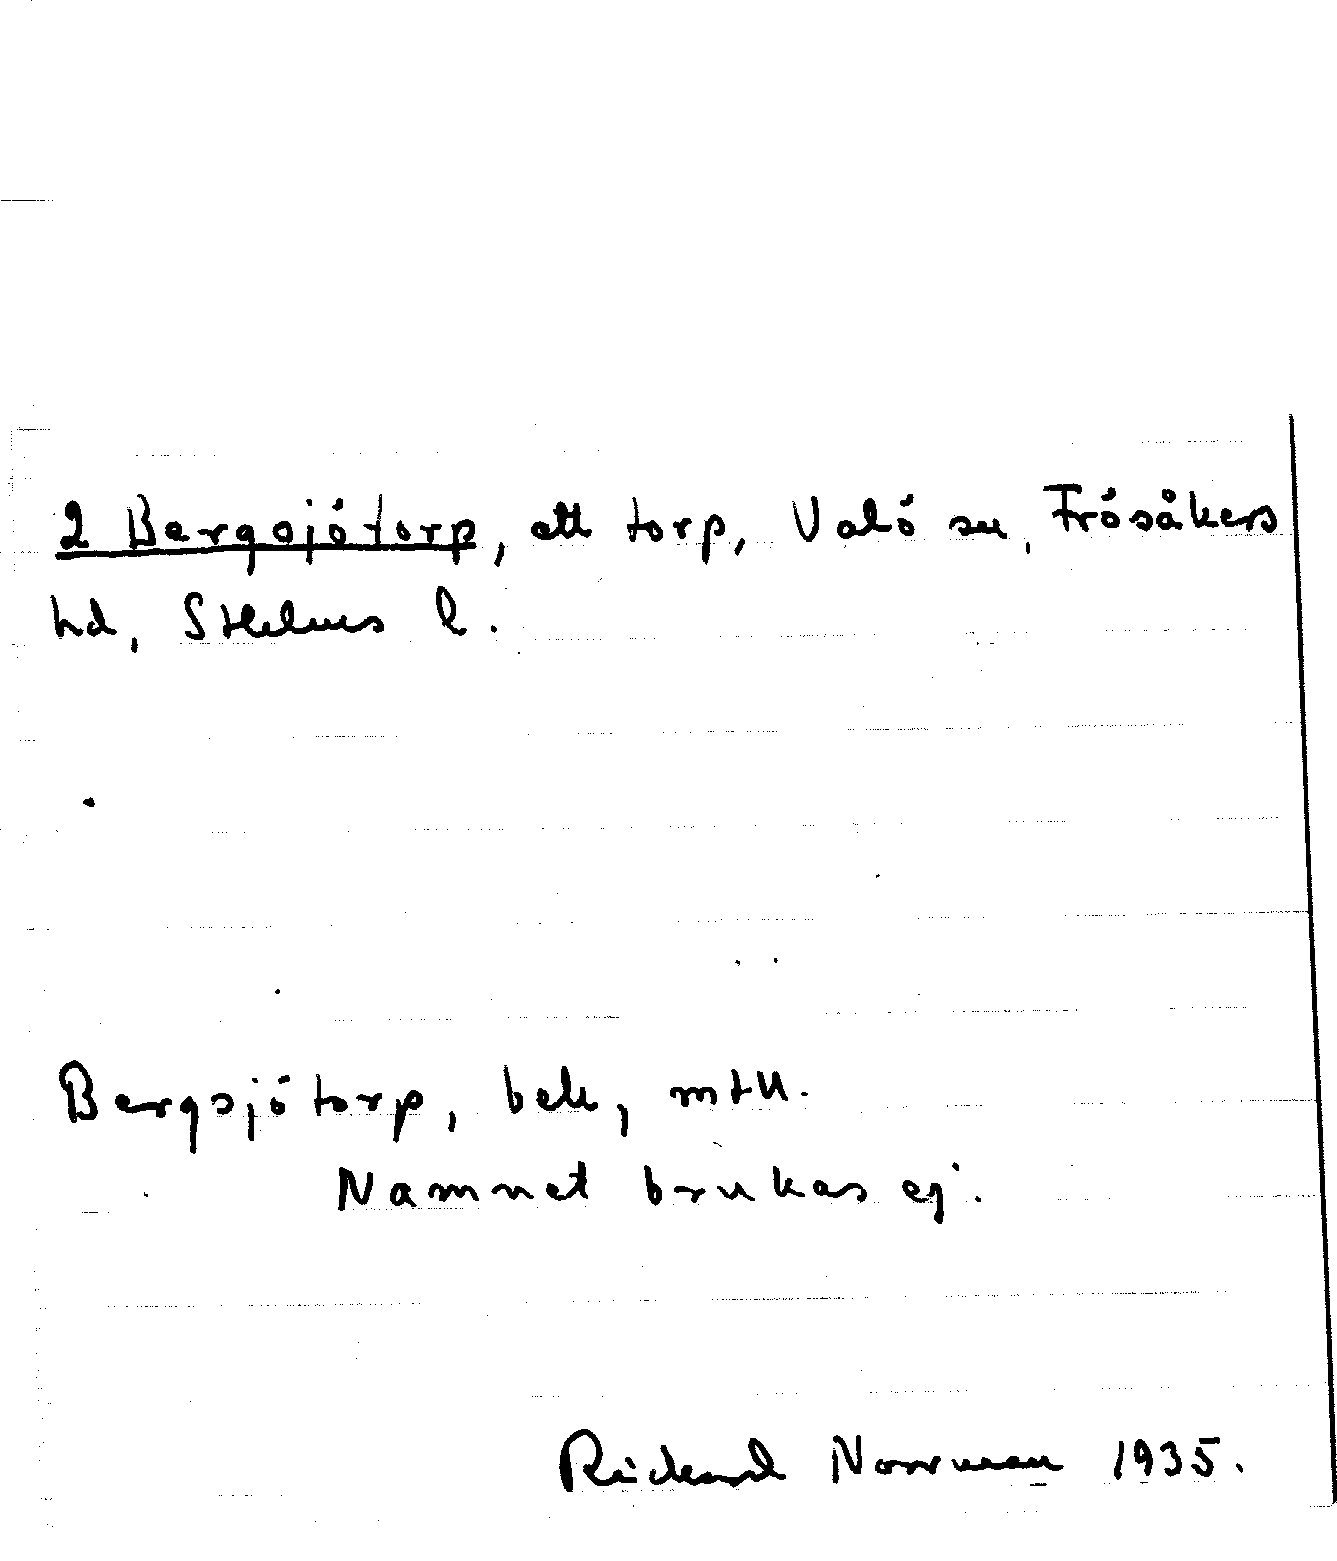 2 Bergsjötorp, ett torp, Valö sn, Frösåkers
hd, Sthlms l.
Bergsjötorp, bek, mtll.
Namnet brukas ej.
Rickard Norrman 1935.